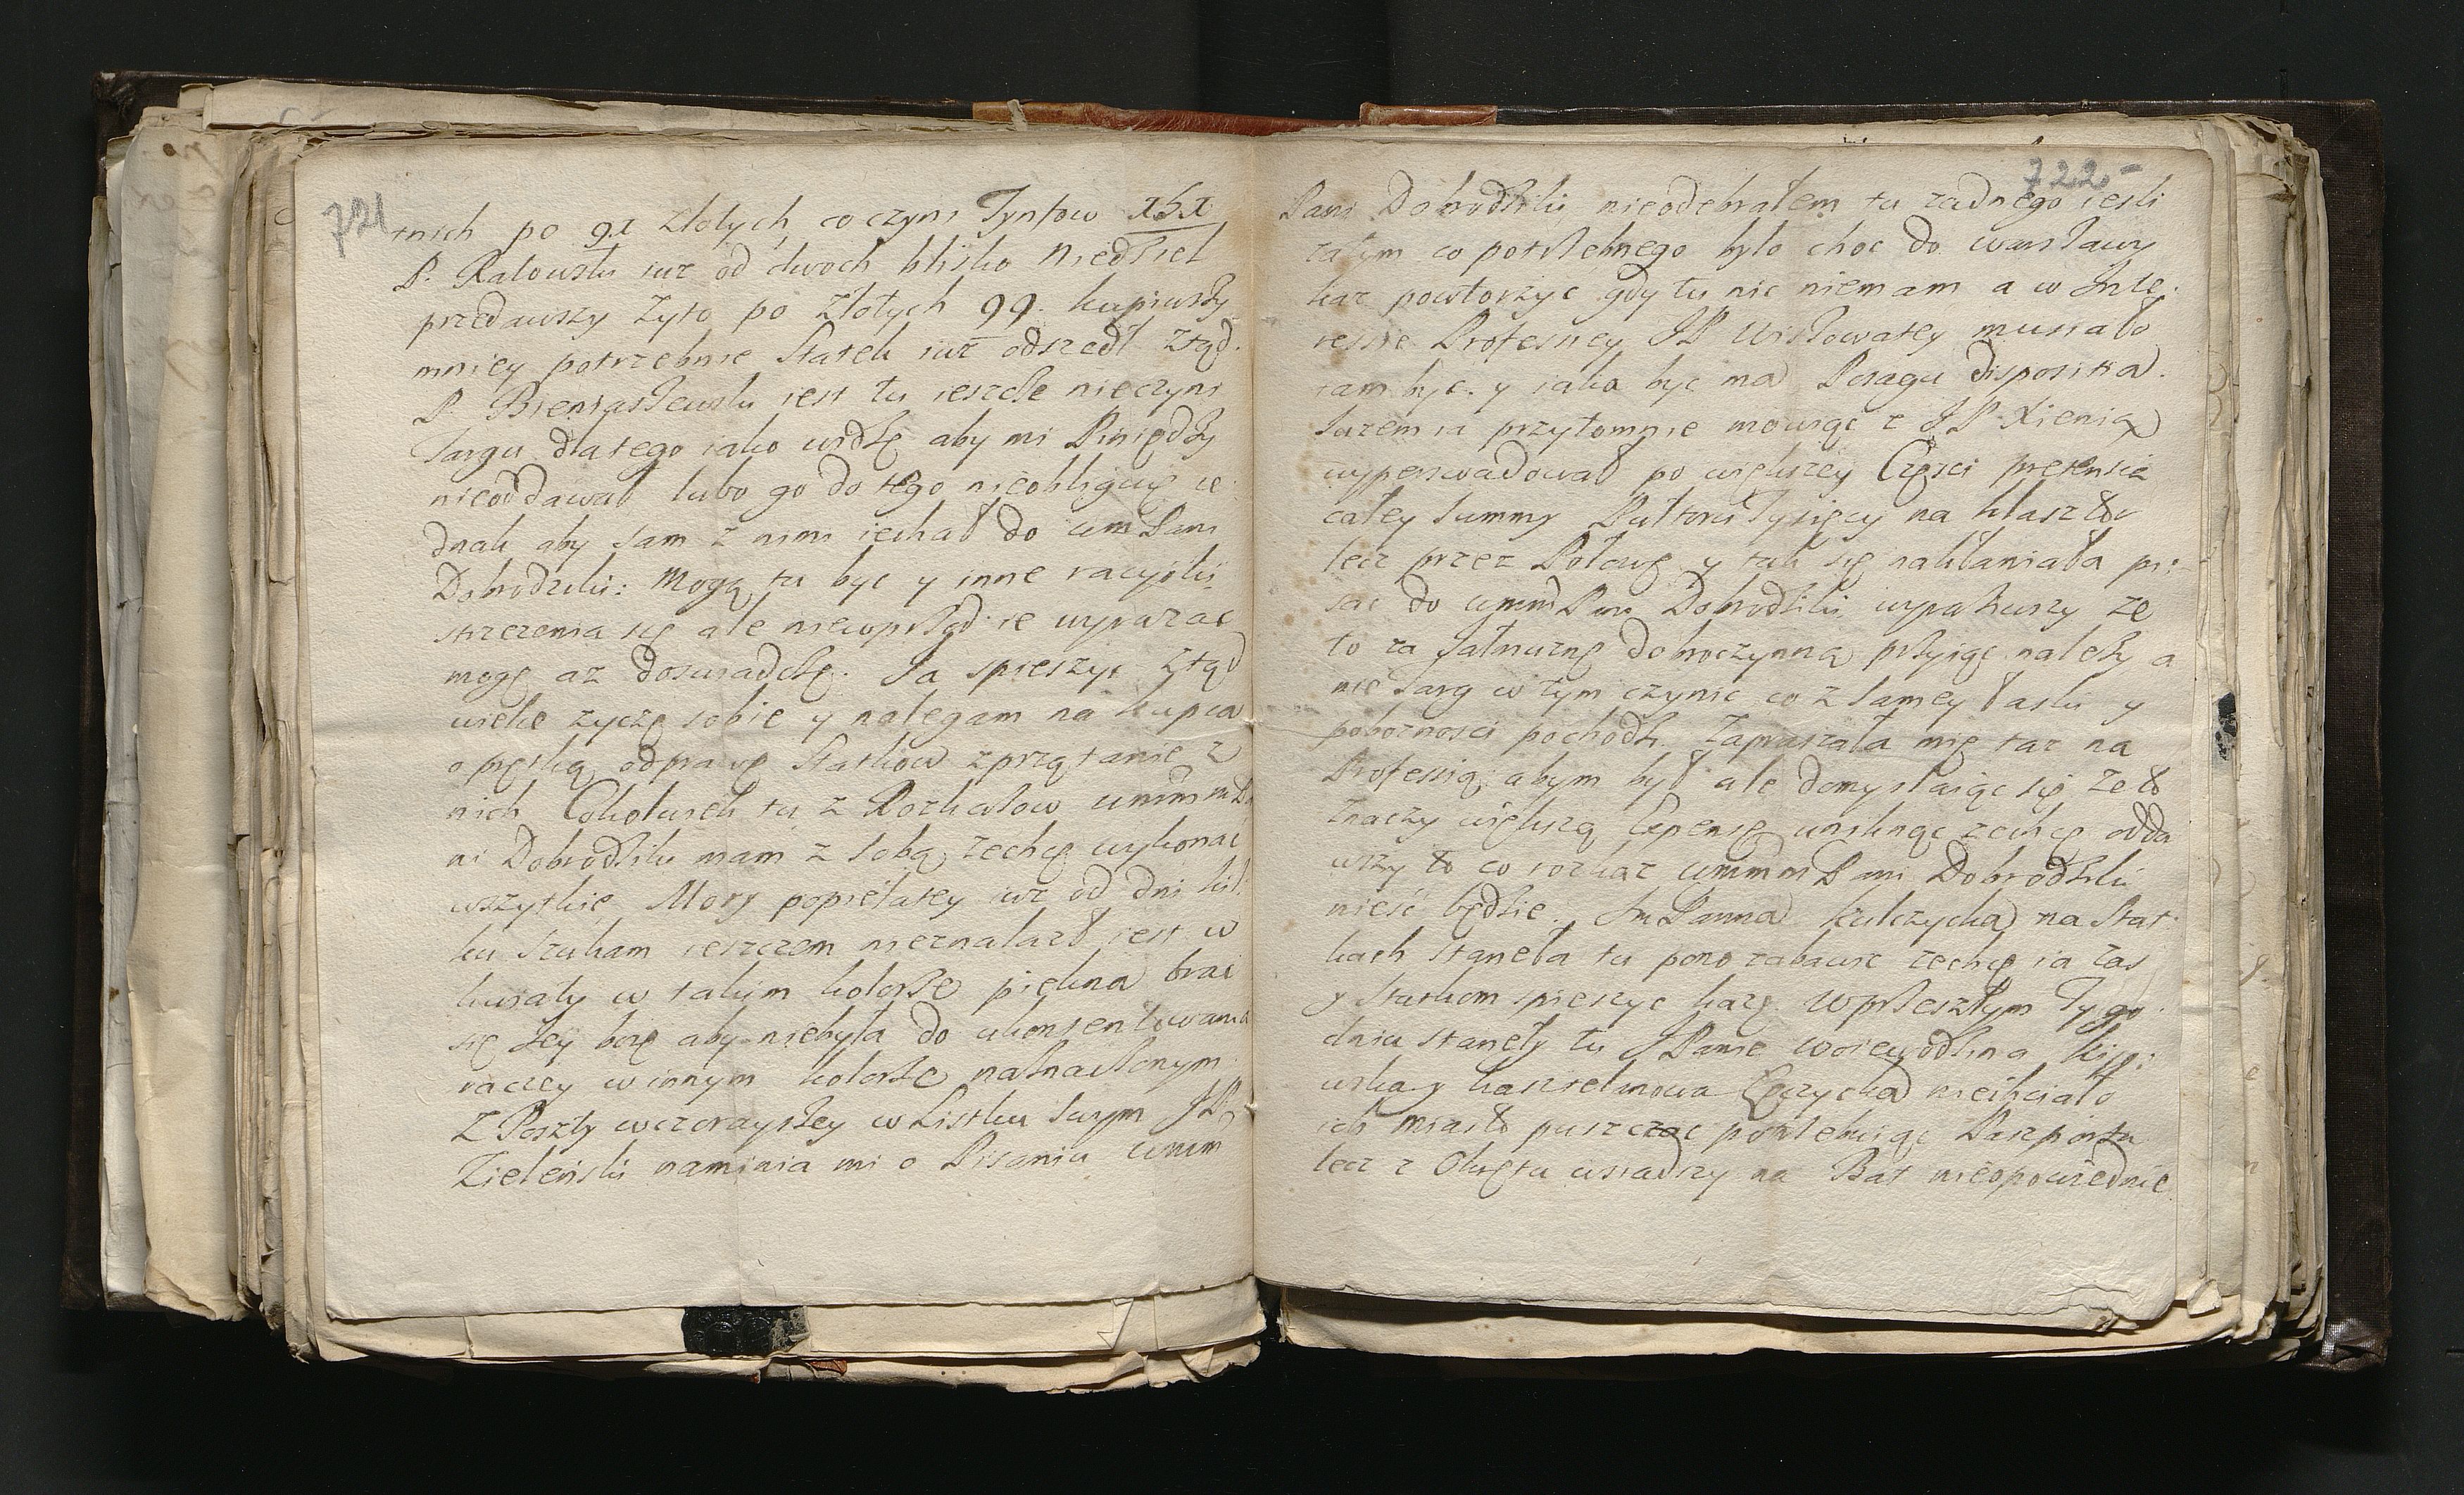 721
tnich po 91 złotych co czyni Tynfow x5x
P. Ratowski iuz od dwoch blisko Niedziel
przedawszy Zyto po złotych 99. kupiwszy
mniey potrzebnie Statek iuz odszedł ztąd.
P. Bieniaszewski iest tu ieszcze nieczyni
Targu dlatego iako widzę aby mi Piniędzy
nieoddawał lubo go do tego nieobliguię ie
dnak aby sam z nimi iechał do wm Pani
Dobrodziki: Mogą tu byc y inne racyiki
strzezenia się ale niewprzod ie wyrazac
mogę az doswiadczę. Ja spieszyc ztąd
wielce zyczę sobie y nalegam na kupca
o prętką odprawę Statkow zprzątanie z
nich Cokolwiek tu z Rozkazow wmm
ni Dobrodziki mam z sobą zechcę wykonac
wszytkie Mory popielatey iuz od dni kil
ku szukam ieszczem nieznalazł iest w
kwiaty w takim kolorze piękna brac
się Jey boię aby niebyła do ukonsentowania
raczey w innym kolorze naznaczonym
Z Poszty wczorayszey w Listku swym JP
Zieleński naminia mi o Pisaniu wmm
722
Pani Dobrodziki nieodebrałem tu zadnego iesli
zatym co potrzebnego było choc do warszawy
kaz powtorzyc gdy tu nic niemam a w Inte.
ressie Profesney JP Wiszowatey musiało
tam byc. y iako byc ma Posagu disposiția.
Jurem ia przytomnie mowiąc z JP Xienią
wyperswadował po większey Częsci pretensie
całey Summy Pułtoru Tysięcy na klasztor
lecz przez Połowę y tak się nakłaniała pi:
sac do wmm Pani Dobrodziki wypatrzywszy ze
to za Jałmuznę dobroczynną przyiąc nalezy a
nie Targ w tym czynic co z samey łaski y
poboznosci pochodzi. Zapraszała mię taz na
Professią abym był ale domyslaiąc się ze to
znaczy większą Expensę uniknąc zechcę odda
wszy to co rozkaz wmmm Pani Dobrodziki
niesć będzie. Jm Panna Kulczycka na Stat
kach staneła tu pono zabawic zechcę ia zas
y Statkom spieszyc każę. W przeszłym Tygo
dniu staneły tu JPanie woiewodzina Kiio:
wska y kasztelanowa Łęczycka niechciało
ich miasto puszczac potrzebuiąc Paszportu
lecz z Okrętu wsiadszy na Bat nieopowiednie